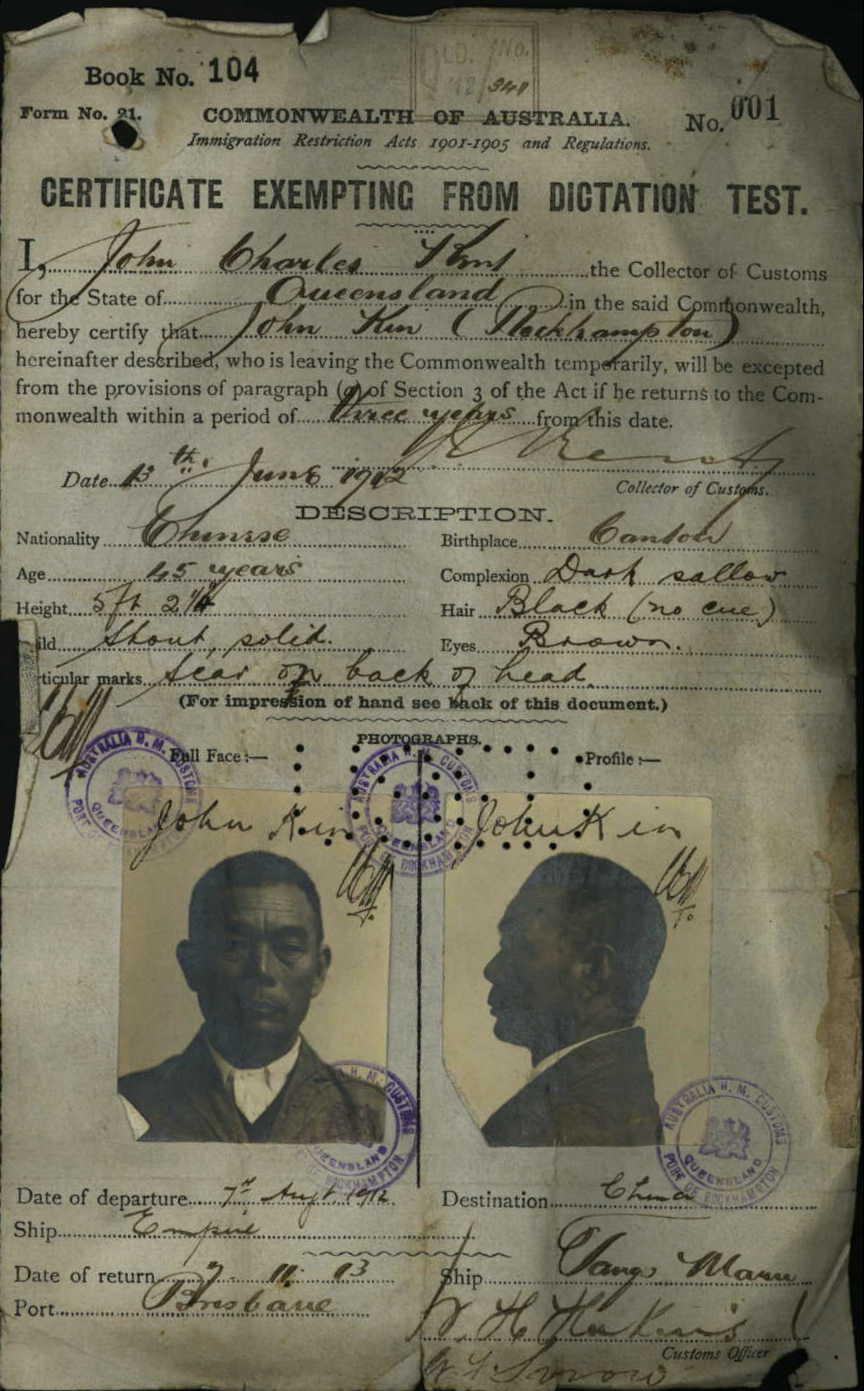 Book No. 104
QLD. No.
12/
Form No. 21.
COMMONWEALTH OF AUSTRALIA.
No. 001
Immigration Restriction Acts 1901-1905 and Regulations.
CERTIFICATE EXEMPTING FROM DICTATION TEST.
I, John Charles Kent the Collector of Customs
for the State of Queensland in the said Commonwealth,
hereby certify that John Kin (Rockhampton)
hereinafter described, who is leaving the Commonwealth temporarily, will be excepted
from the provisions of paragraph (a) of Section 3 of the Act if he returns to the Com-
monwealth within a period of three years from this date.
Date 13th June 1912
Collector of Customs.
DESCRIPTION.
Nationality Chinese Birthplace Canton
Age 45 years Complexion Dark sallow
Height 5 ft 2 1/4 Hair Black (no cue)
ild Stout, solid. Eyes Brown.
ticular marks Scar on back of head
(For impression of hand see back of this document.)
PHOTOGRAPHS.
Full Face:— Profile:—
AUSTRALIA H. M. CUSTOMS
QUEENSLAND
PORT OF ROCKHAMPTON
John Kin John Kin
AUSTRALIA H. M. CUSTOMS
QUEENSLAND
PORT OF ROCKHAMPTON
Date of departure 7th Augt. 1912 Destination China
Ship Empire
Date of return 7 - 11 - 13 Ship
Port Brisbane
Customs Officer